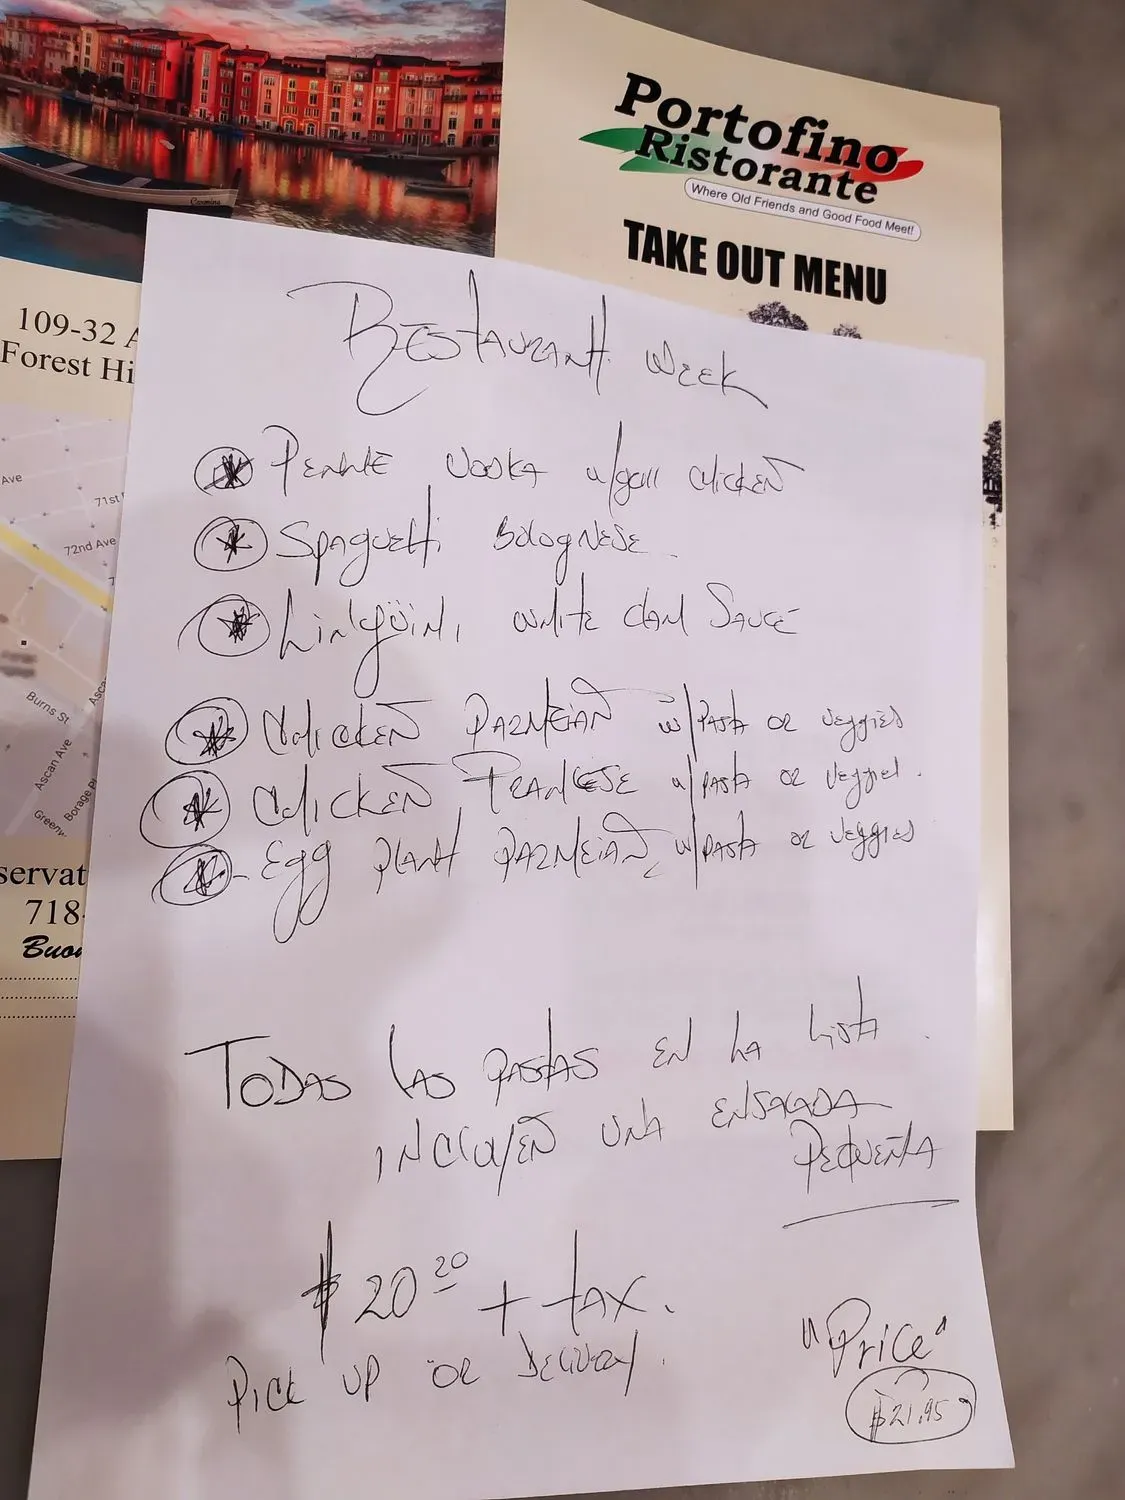 Carmine
Portofino
Ristorante
Where Old Friends and Good Food Meet!
TAKE OUT MENU
109-32 A
Forest Hi
Ave
71st
72nd Ave
7
Burns St
Asca
Ascan Ave
Borage Pl
Greenw
servat
718-
Buon
RESTAURANT WEEK
PENNE VODKA w/grill CHICKEN
SPAGUETTI BOLOGNESE
LINGÜINI WHITE CLAM SAUCE
CHICKEN PARMEIAN w/PASTA OR VEGGIES
CHICKEN FRANCESE w/PASTA OR VEGGIES.
EGG PLANT PARMEIAN w/PASTA OR VEGGIES
TODAS LAS PASTAS EN LA LISTA.
INCLUYEN UNA ENSALADA
PEQUEÑA
$20 20 + TAX.
PICK UP OR DELIVERY.
"Price"
$21.95